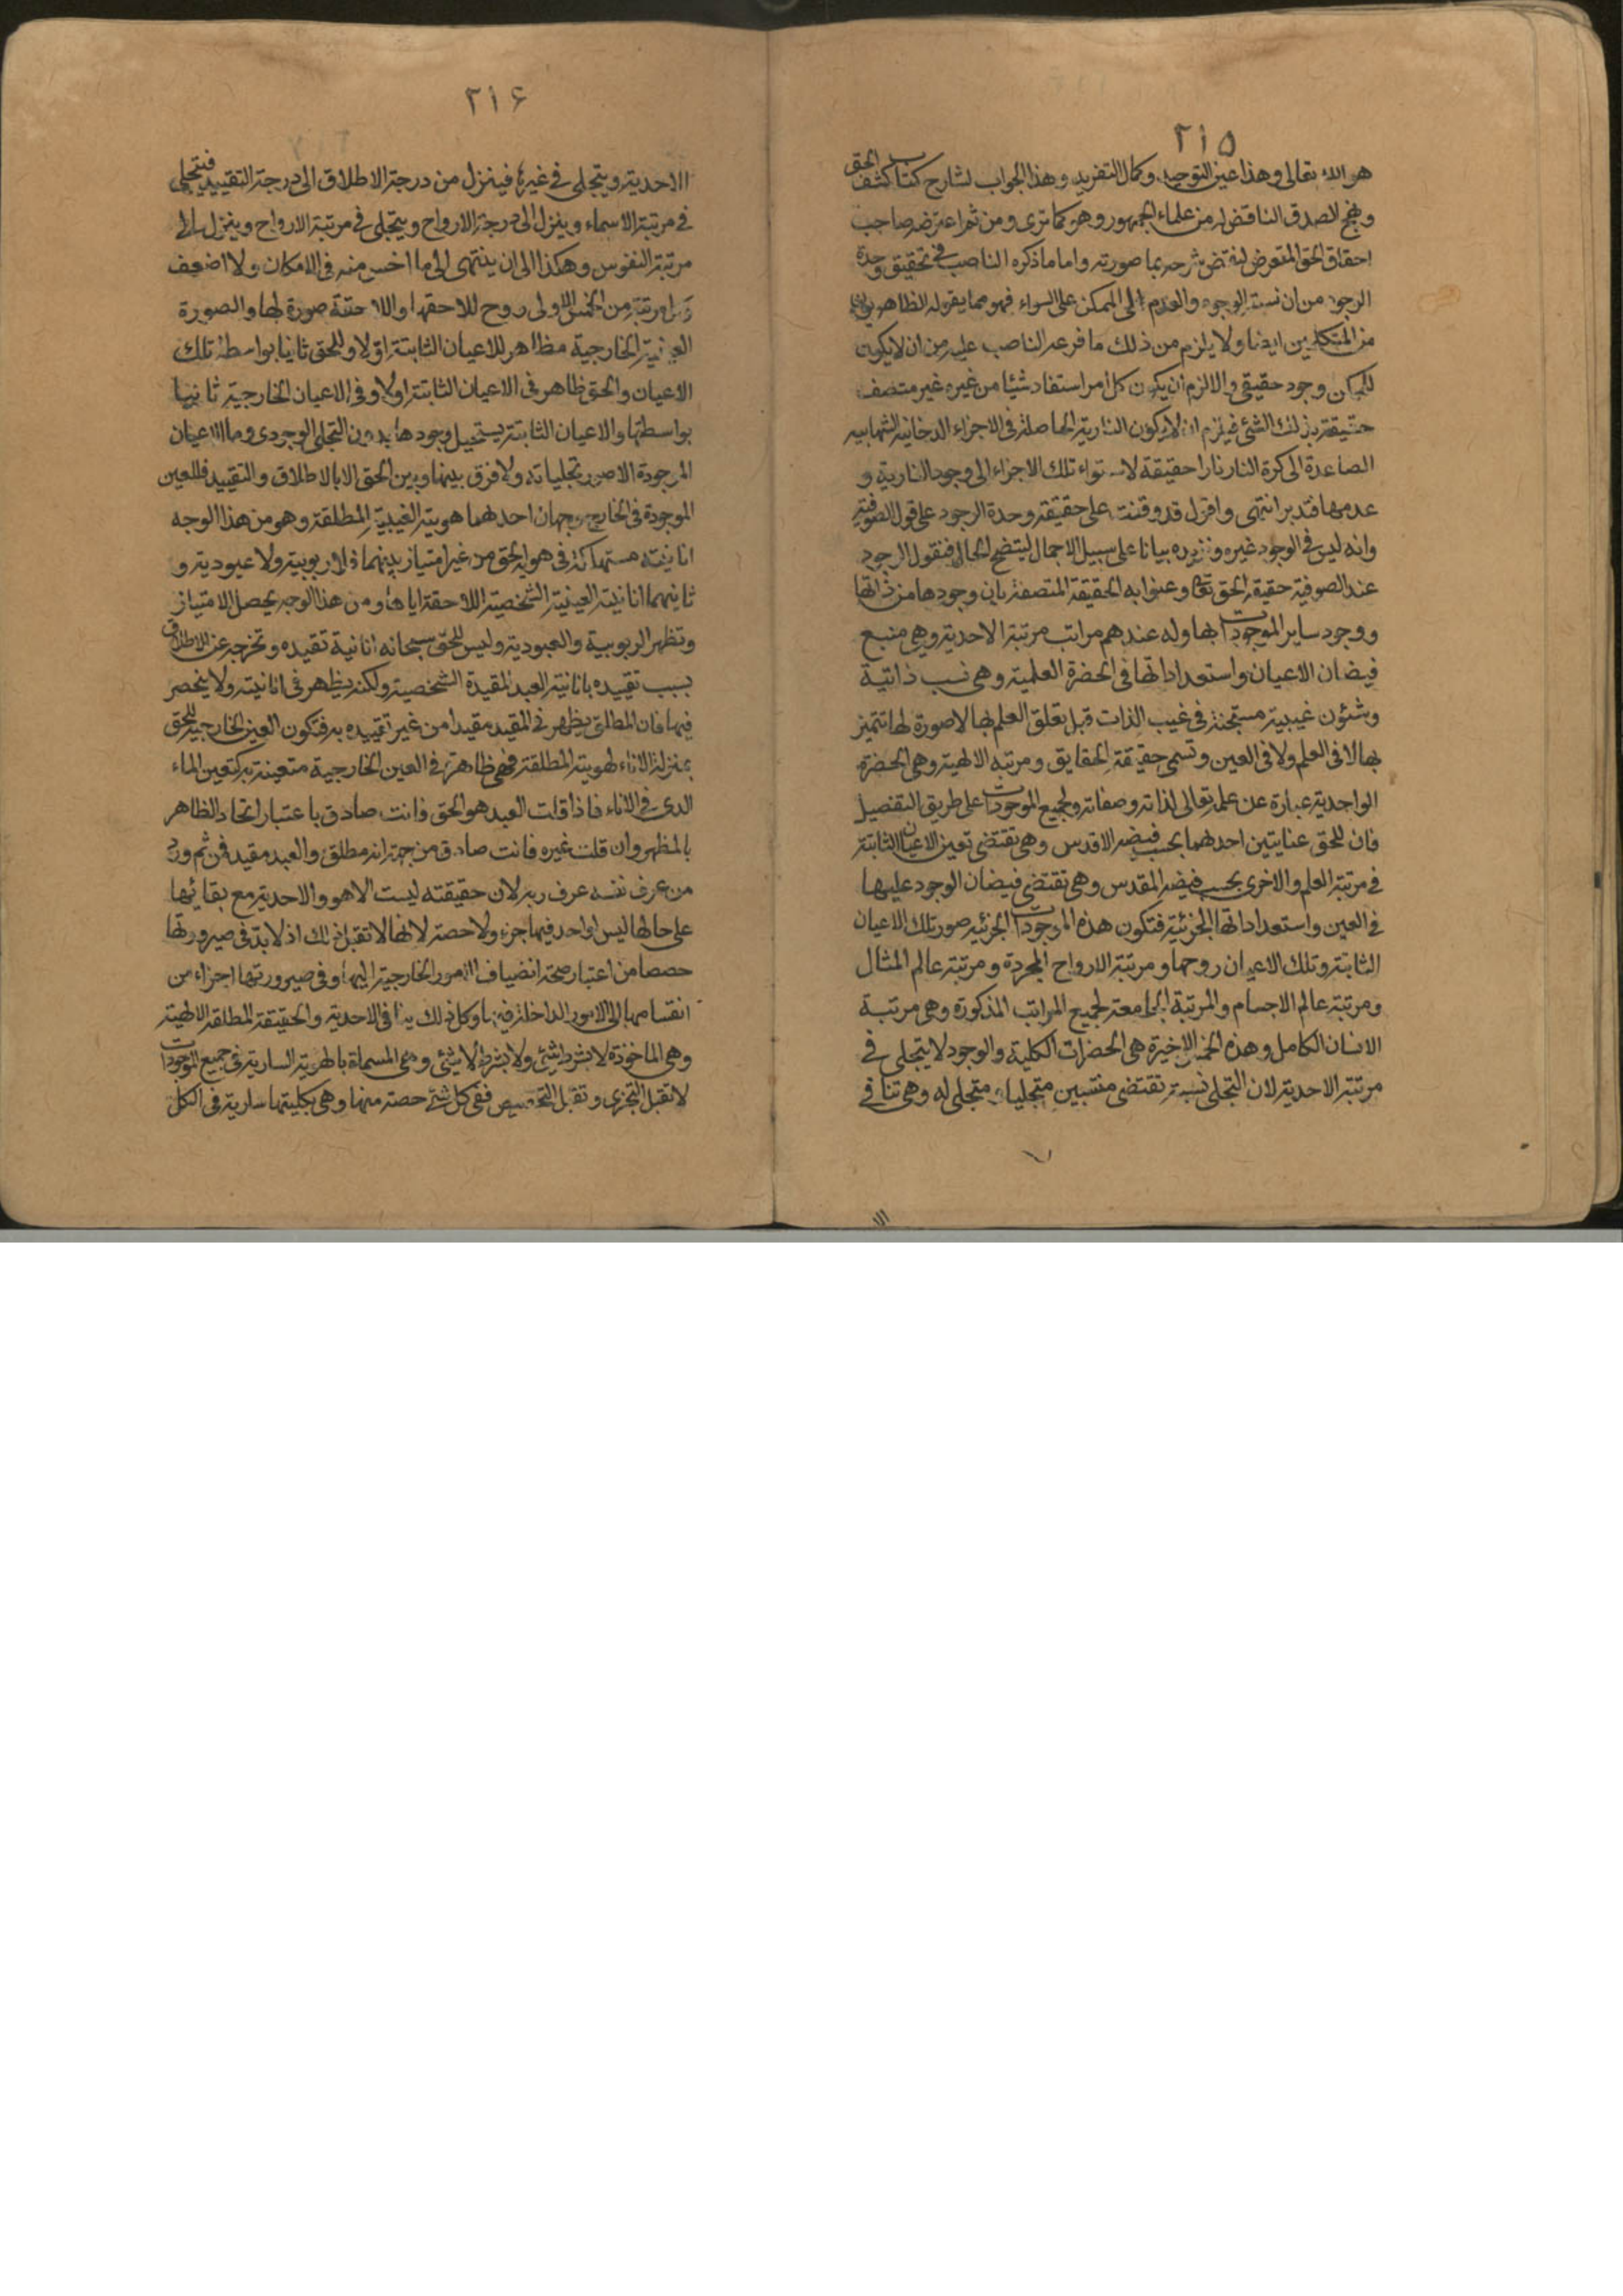 ٢١٥
هو الله تعالى وهذا عين التوحيد وكمال التفريد وهذا الجواب لشارح كتاب كشف الحق
ونهج الصدق الناقض له من علماء الجمهور وهو كما ترى ومن ثم اعترضه صاحب
احقاق الحق المتعرض لنقض شرحه بما صورته واما ما ذكره الناصب في تحقيق وحدة
الوجود من ان نسبة الوجود والعدم الى الممكن على السواء فهو مما يقوله الظاهريون
من المتكلمين ايضا ولا يلزم من ذلك ما فرعه الناصب عليه من ان لا يكون
للممكن وجود حقيقي والا لزم ان يكون كل امر استفاد شيئا من غيره غير متصف
حقيقة بذلك الشئ فيلزم ان لا يكون النارية الحاصلة في الاجزاء الدخانية الشهابيه
الصاعدة الى كرة النار نارا حقيقة لاستواء تلك الاجزاء الى وجود النارية و
عدمها فتدبر انتهى واقول قد وقفت على حقيقة وحدة الوجود على قول الصوفية
وانه ليس في الوجود غيره ونزيده بيانا على سبيل الاجمال ليتضح الحال فنقول الوجود
عند الصوفية حقيقة الحق تعالى وعنوا به الحقيقة المتصفة بان وجودها من ذاتها
ووجود ساير الموجودات بها وله عندهم مراتب مرتبة الاحدية وهي منبع
فيضان الاعيان واستعداداتها في الحضرة العلمية وهي نسب ذاتية
وشئون غيبية مستجنة في غيب الذات قبل تعلق العلم بها لا صورة لها تتميز
بها لا في العلم ولا في العين وتسمى حقيقة الحقايق ومرتبه الالهية وهي الحضرة
الواحدية عبارة عن علمه تعالى لذاته وصفاته ولجميع الموجودات على طريق التفصيل
فان للحق عنايتين احدهما بحسب فيضه الاقدس وهي تقتضي تعين الاعيان الثابتة
في مرتبة العلم والاخرى بحسب فيضه المقدس وهي تقتضي فيضان الوجود عليها
في العين واستعداداتها الجزئية فتكون هذه الموجودات الجزئية صور تلك الاعيان
الثابتة وتلك الاعيان روحها ومرتبة الارواح المجردة ومرتبة عالم المثال
ومرتبة عالم الاجسام والمرتبة الجامعة لجميع المراتب المذكورة وهي مرتبة
الانسان الكامل وهذه الخمسة الاخيرة هي الحضرات الكلية والوجود لا يتجلى في
مرتبة الاحدية لان التجلي نسبة تقتضي منتسبين متجليا ومتجلى له وهي تنافي
٢١٦
الاحدية ويتجلى في غيرها فينزل من درجة الاطلاق الى درجة التقييد فيتجلى
في مرتبة الاسماء وينزل الى درجة الارواح ويتجلى في مرتبة الارواح وينزل الى
مرتبة النفوس وهكذا الى ان ينتهى الى ما اخس منه في الامكان ولا اضعف
وكل مرتبة من الخمس الاولى روح للاحقها واللاحقة صورة لها والصورة
العينية الخارجية مظاهر للاعيان الثابتة اولا وللحق ثانيا بواسطة تلك
الاعيان والحق ظاهر في الاعيان الثابتة اولا وفي الاعيان الخارجية ثانيا
بواسطتها والاعيان الثابتة يستحيل وجودها بدون التجلي الوجودي وما الاعيان
الموجودة الا صور تجلياته ولا فرق بينها وبين الحق الا بالاطلاق والتقييد فللعين
الموجودة في الخارج وجهان احدهما هويته الغيبية المطلقة وهو من هذا الوجه
انانيته مستهلكة في هوية الحق من غير امتياز بينهما فلا ربوبية ولا عبودية و
ثانيهما انانيته العينية الشخصية اللاحقة اياها ومن هذا الوجه يحصل الامتياز
وتظهر الربوبية والعبودية وليس للحق سبحانه انانية تقيده وتخرجه عن الاطلاق
بسبب تقييده بانانية العبد المقيدة الشخصية ولكنه يظهر في انانيته ولا ينحصر
فيها فان المطلق يظهر في المقيد مقيدا من غير تقييده به فتكون العين الخارجية للحق
بمنزلة الاناء لهويته المطلقة فهي ظاهرة في العين الخارجية متعينة به كتعين الماء
الذى في الاناء فاذا قلت العبد هو الحق فانت صادق باعتبار اتحاد الظاهر
بالمظهر وان قلت غيره فانت صادق من جهة انه مطلق والعبد مقيد فمن ثم ورد
من عرف نفسه عرف ربه لان حقيقته ليست الا هو والاحدية مع بقائها
على حالها ليس لواحد فيها جزء ولا حصة لانها لا تقبل ذلك اذ لا بد في صيرورتها
حصصا من اعتبار صحة انضياف الامور الخارجية اليها وفي صيرورتها اجزاء من
انقسامها الى الامور الداخلة فيها وكل ذلك ينافى الاحدية والحقيقة المطلقة الالهية
وهي الماخوذة لا بشرط شئ ولا بشرط لا شئ وهي المسماة بالهوية السارية في جميع الموجودات
لا تقبل التجزى وتقبل التخصيص ففي كل شئ حصة منها وهي بكليتها سارية في الكل